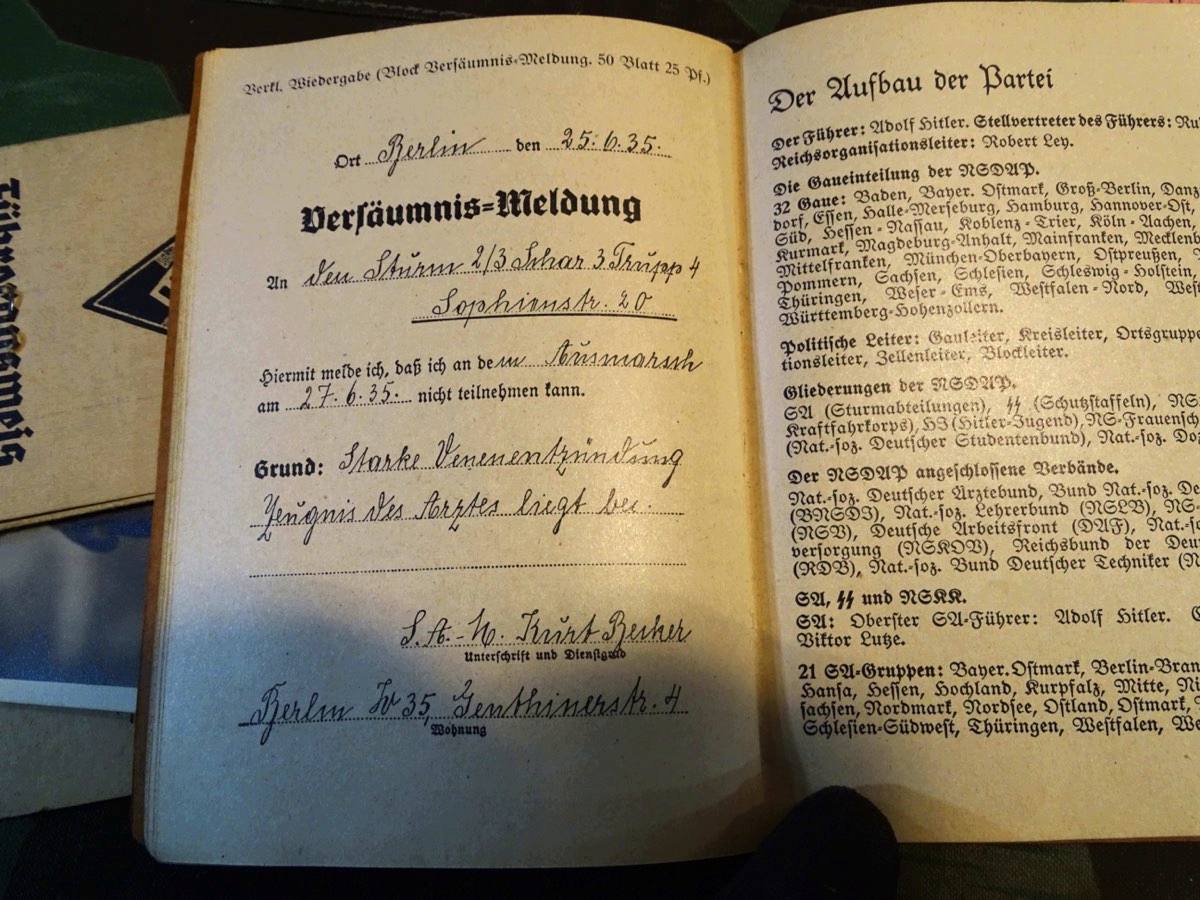 Verkl. Wiedergabe (Block Versäumnis-Meldung. 50 Blatt 25 Pf.)
Ort Berlin den 25.6.35.
Versäumnis-Meldung
An den Sturm 2/3 Schar 3 Trupp 4
Sophienstr. 20
Hiermit melde ich, daß ich an dem Ausmarsch
am 27.6.35. nicht teilnehmen kann.
Grund: Starke Venenentzündung
Zeugnis des Arztes liegt bei.
S.A.-M. Kurt Becker
Unterschrift und Dienstgrad
Berlin W 35, Genthinerstr. 4
Wohnung
Der Aufbau der Partei
Der Führer: Adolf Hitler. Stellvertreter des Führers:
Reichsorganisationsleiter: Robert Ley.
Die Gaueinteilung der NSDAP.
32 Gaue: Baden, Bayer. Ostmark, Groß-Berlin, Danz
dorf, Essen, Halle-Merseburg, Hamburg, Hannover-Ost,
Süd, Hessen-Nassau, Koblenz-Trier, Köln-Aachen,
Kurmark, Magdeburg-Anhalt, Mainfranken, Mecklenb
Mittelfranken, München-Oberbayern, Ostpreußen,
Pommern, Sachsen, Schlesien, Schleswig-Holstein,
Thüringen, Weser-Ems, Westfalen-Nord, West
Württemberg-Hohenzollern.
Politische Leiter: Gauleiter, Kreisleiter, Ortsgruppe
tionsleiter, Zellenleiter, Blockleiter.
Gliederungen der NSDAP.
SA (Sturmabteilungen), SS (Schutzstaffeln), NS
Kraftfahrkorps), HJ (Hitler-Jugend), NS-Frauensch
(Nat.-soz. Deutscher Studentenbund), Nat.-soz. Doz
Der NSDAP angeschlossene Verbände.
Nat.-soz. Deutscher Ärztebund, Bund Nat.-soz. De
(BNSDJ), Nat.-soz. Lehrerbund (NSLB), NS-
(NSV), Deutsche Arbeitsfront (DAF), Nat.-so
versorgung (NSKOV), Reichsbund der Deu
(RDB), Nat.-soz. Bund Deutscher Techniker (N
SA, SS und NSKK.
SA: Oberster SA-Führer: Adolf Hitler.
Viktor Lutze.
21 SA-Gruppen: Bayer. Ostmark, Berlin-Bran
Hansa, Hessen, Hochland, Kurpfalz, Mitte, Ni
sachsen, Nordmark, Nordsee, Ostland, Ostmark,
Schlesien-Südwest, Thüringen, Westfalen, We